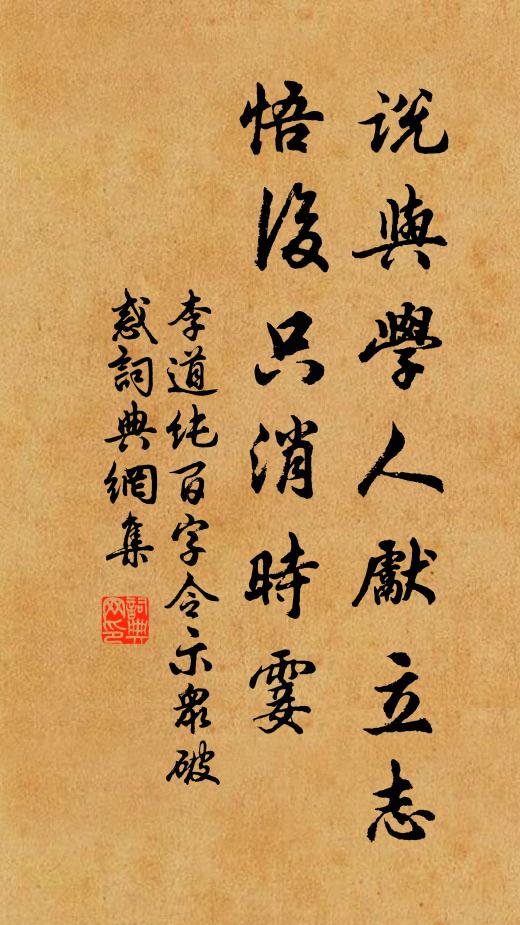 說與學人獻立志
悟後只消時霎
李道純百字令示眾破
惑詞典網集
詞典
网印